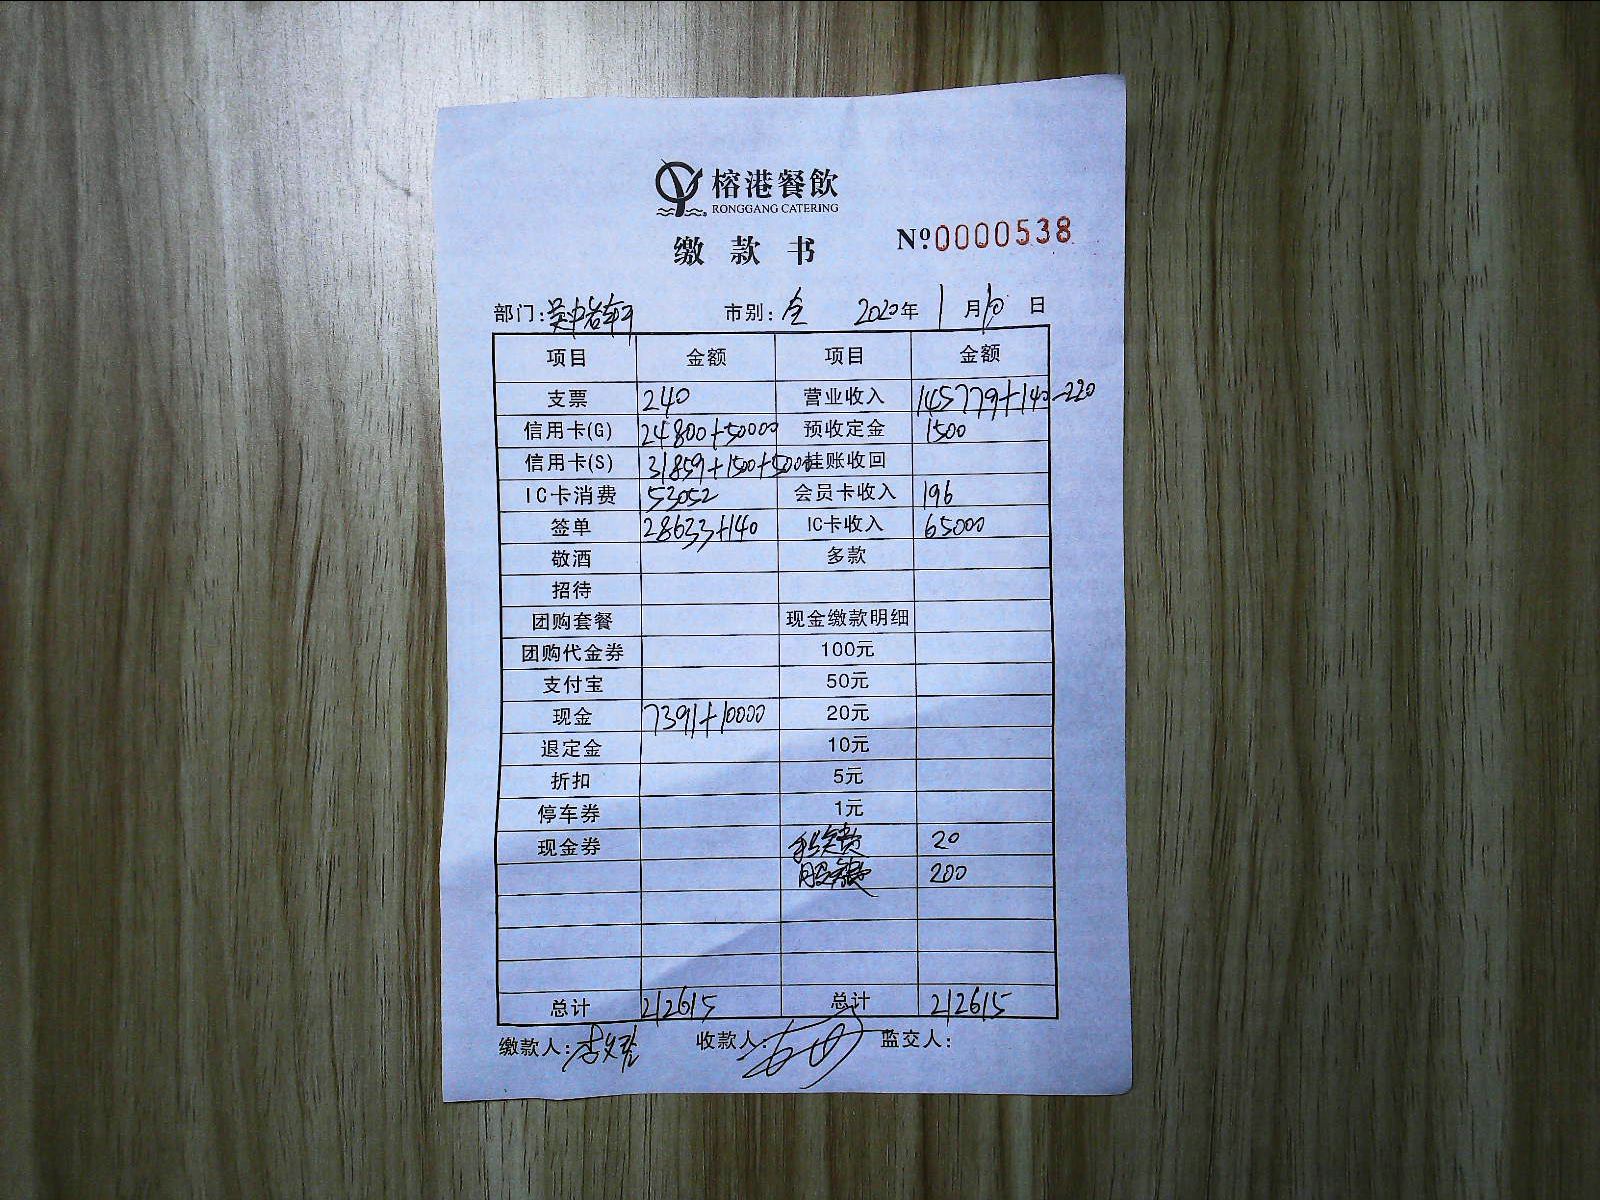 榕港餐飲
RONGGANG CATERING
缴款书 №0000538
部门: 市别:全 2020年1月10日
项目 金额 项目 金额
支票 240 营业收入 145779+140-220
信用卡(G) 24800+50000 预收定金 1500
信用卡(S) 31859+1500+5000 挂账收回
IC卡消费 53052 会员卡收入 196
签单 28633+140 IC卡收入 65000
敬酒 多款
招待
团购套餐 现金缴款明细
团购代金券 100元
支付宝 50元
现金 7391+10000 20元
退定金 10元
折扣 5元
停车券 1元
现金券 20
200
总计 212615 总计 212615
缴款人: 收款人: 监交人: